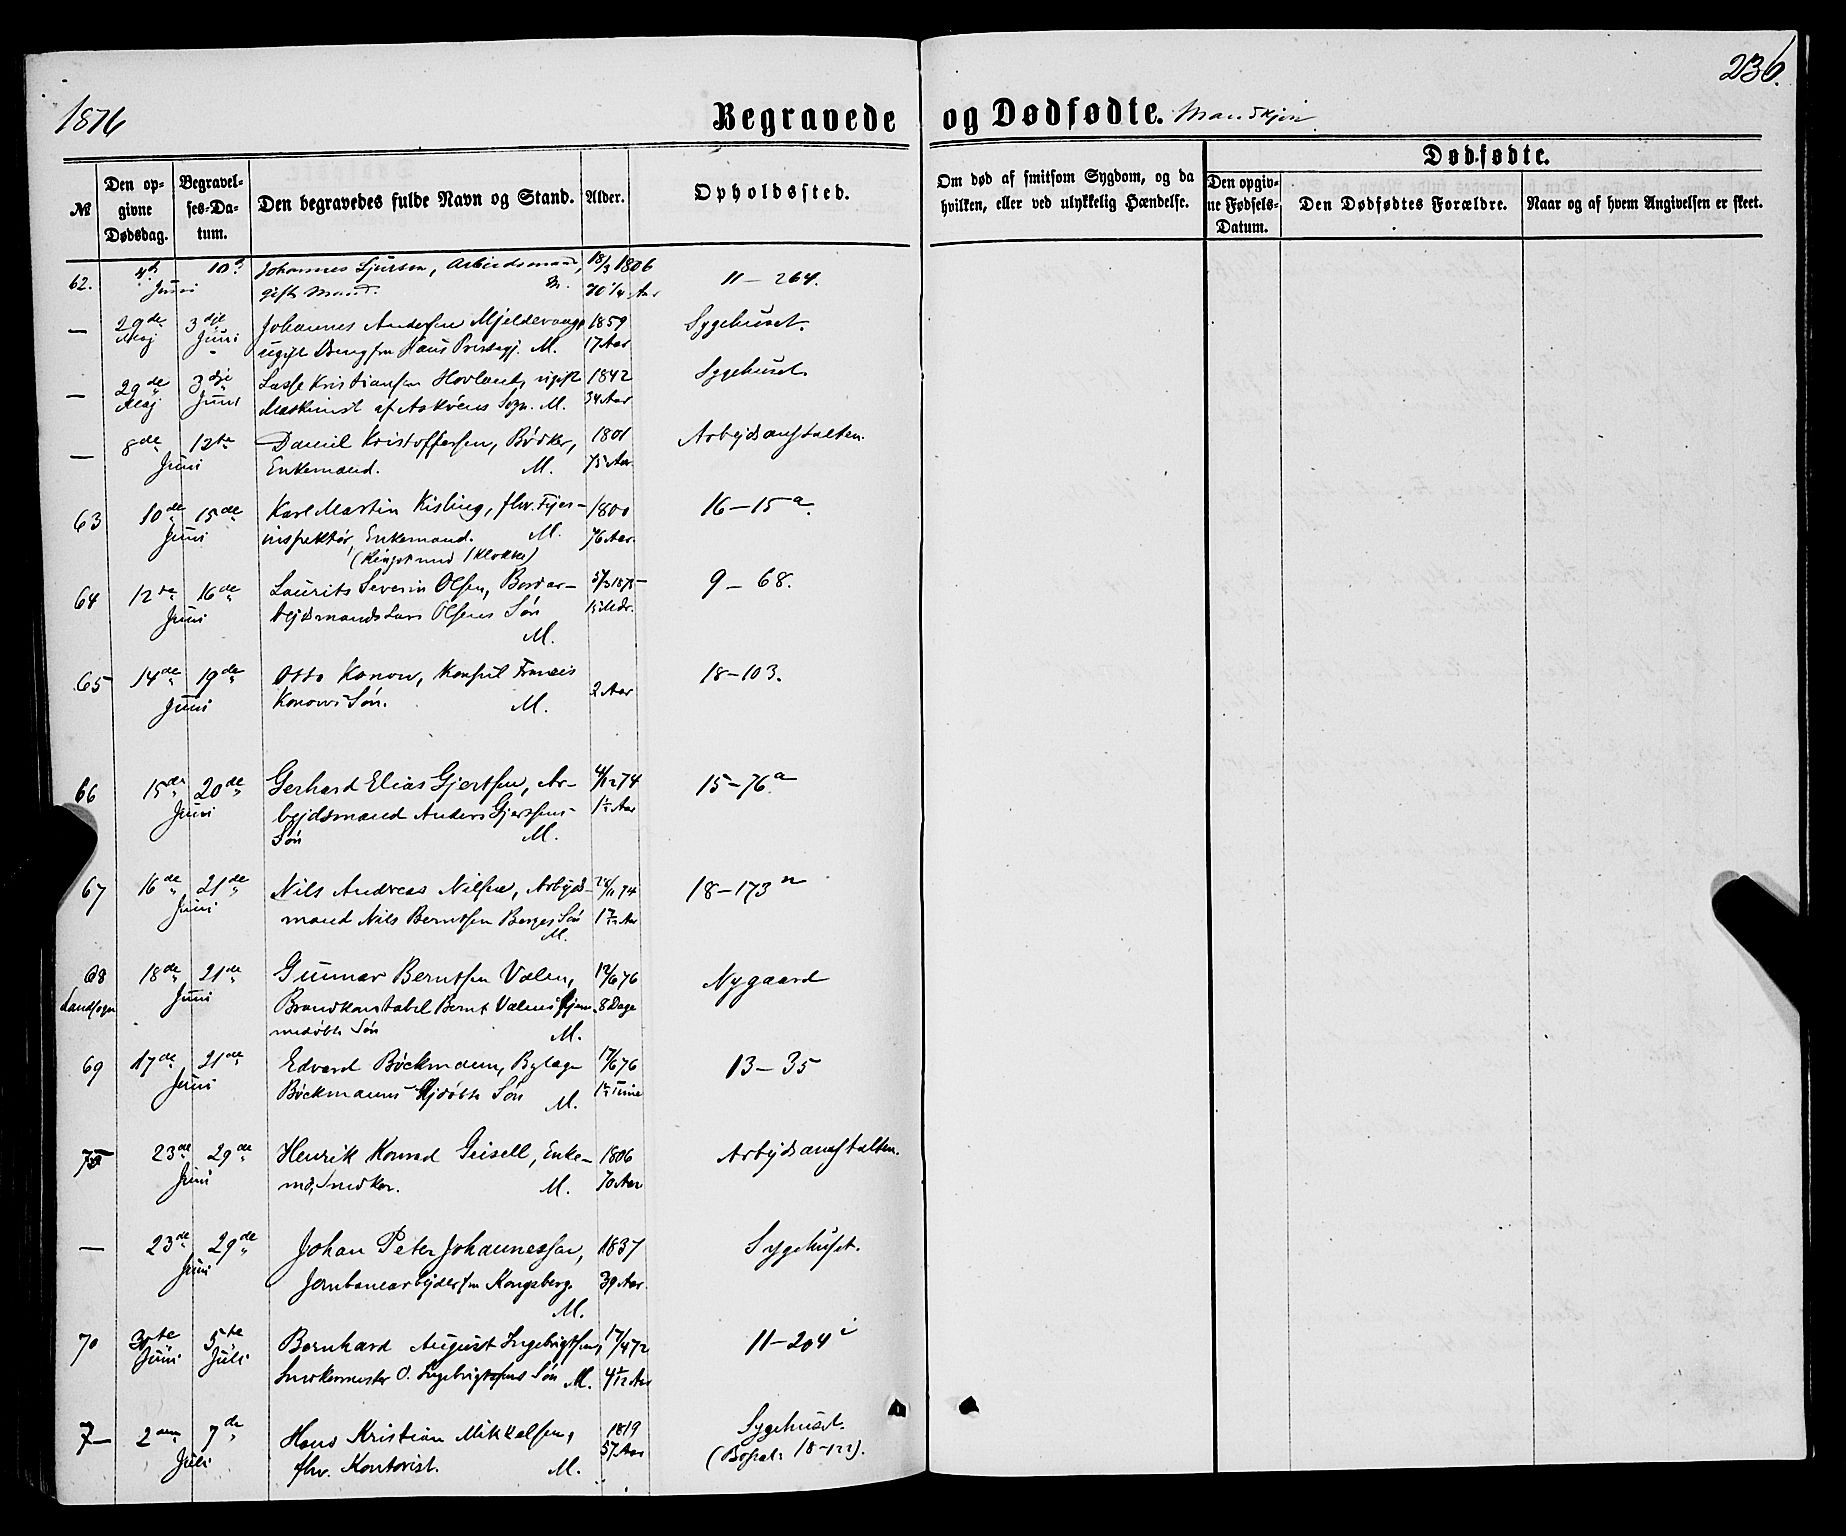 1876
236.
Begravede og Dødfødte. Mandkjøn
№
Den opgivne Dødsdag.
Begravelses-Datum.
Den begravedes fulde Navn og Stand.
Alder.
Opholdssted.
Om død af smitsom Sygdom, og da hvilken, eller ved ulykkelig Hændelse.
Dødfødte.
Den opgivne Fødsels-Datum.
Den Dødfødtes Forældre.
Naar og af hvem Angivelsen er skeet.
62. 4de 10de Johannes Sjursen, Arbeidsmand, 18/3 1806 11–264.
Juni gift Mand. M. 70 1/4 Aar
— 29de 3die Johannes Andersen Mjeldevange 1859 Sygehuset.
Maj Juni ugift Dreng fra Haus Prestegj. M. 17 Aar
— 29de 3die Lasse Kristiansen Hovland, ugift 1842 Sygehuset.
Maj Juni Maskinist af Askøens Sogn. M. 34 Aar
— 8de 12te Daniel Kristoffersen, Bødker, 1801 Arbejdsanstalten.
Juni Enkemand. M. 75 Aar
63 10de 15de Karl Martin Kisling, fhv. Fyr- 1800 16–15a
Juni inspektør, Enkemand. M. 76 Aar
(Ringet med 1 Klokke)
64 12te 16de Laurits Severin Olsen, Bordar- 9–68.
Juni bejdsmand Lars Olsens Søn
M.
65 14de 19de Otto Konow, Konsul Francis 18–103.
Juni Konows Søn. M. 2 Aar
66 15de 20de Gerhard Elias Gjertsen, Ar- 4/12 74 15–76a
Juni bejdsmand Anders Gjertsens 1½ Aar
Søn M.
67 16de 21de Nils Andreas Nilsen, Arbejds- 18–173n
Juni mand Nils Berntsen Berges Søn
M.
68 18de 21de Gunnar Berntsen Valen, Nygaard
Landsogn Juni Brandkonstabel Bernt Valens hjem- 8 Dage
medøbte Søn M.
69 17de 21de Edvard Böckmann, Bylæge 17/6 76 13–35
Juni Böckmanns Hjdøbte Søn M. ½ Time
23de 29de Henrik Konrad Geisell, Enke- 1806 Arbejdsanstalten.
Juni md, Snedker. M. 70 Aar
— 23de 29de Johan Peter Johannessen, 1837 Sygehuset.
Juni Jernbanearbejder fra Kongsberg. 39 Aar.
M.
70 30te 5te Bernhard August Ingebrigtsen, 17/4 72 11–204i
Juni Juli Snedkermester O. Ingebrigtsens Søn M. 4 2/12 Aar
— 2den 7de Hans Kristian Mikkelsen, 1819 Sygehuset.
Juli fhv. Kontorist. M. 57 Aar (Bopæl: 18–122).